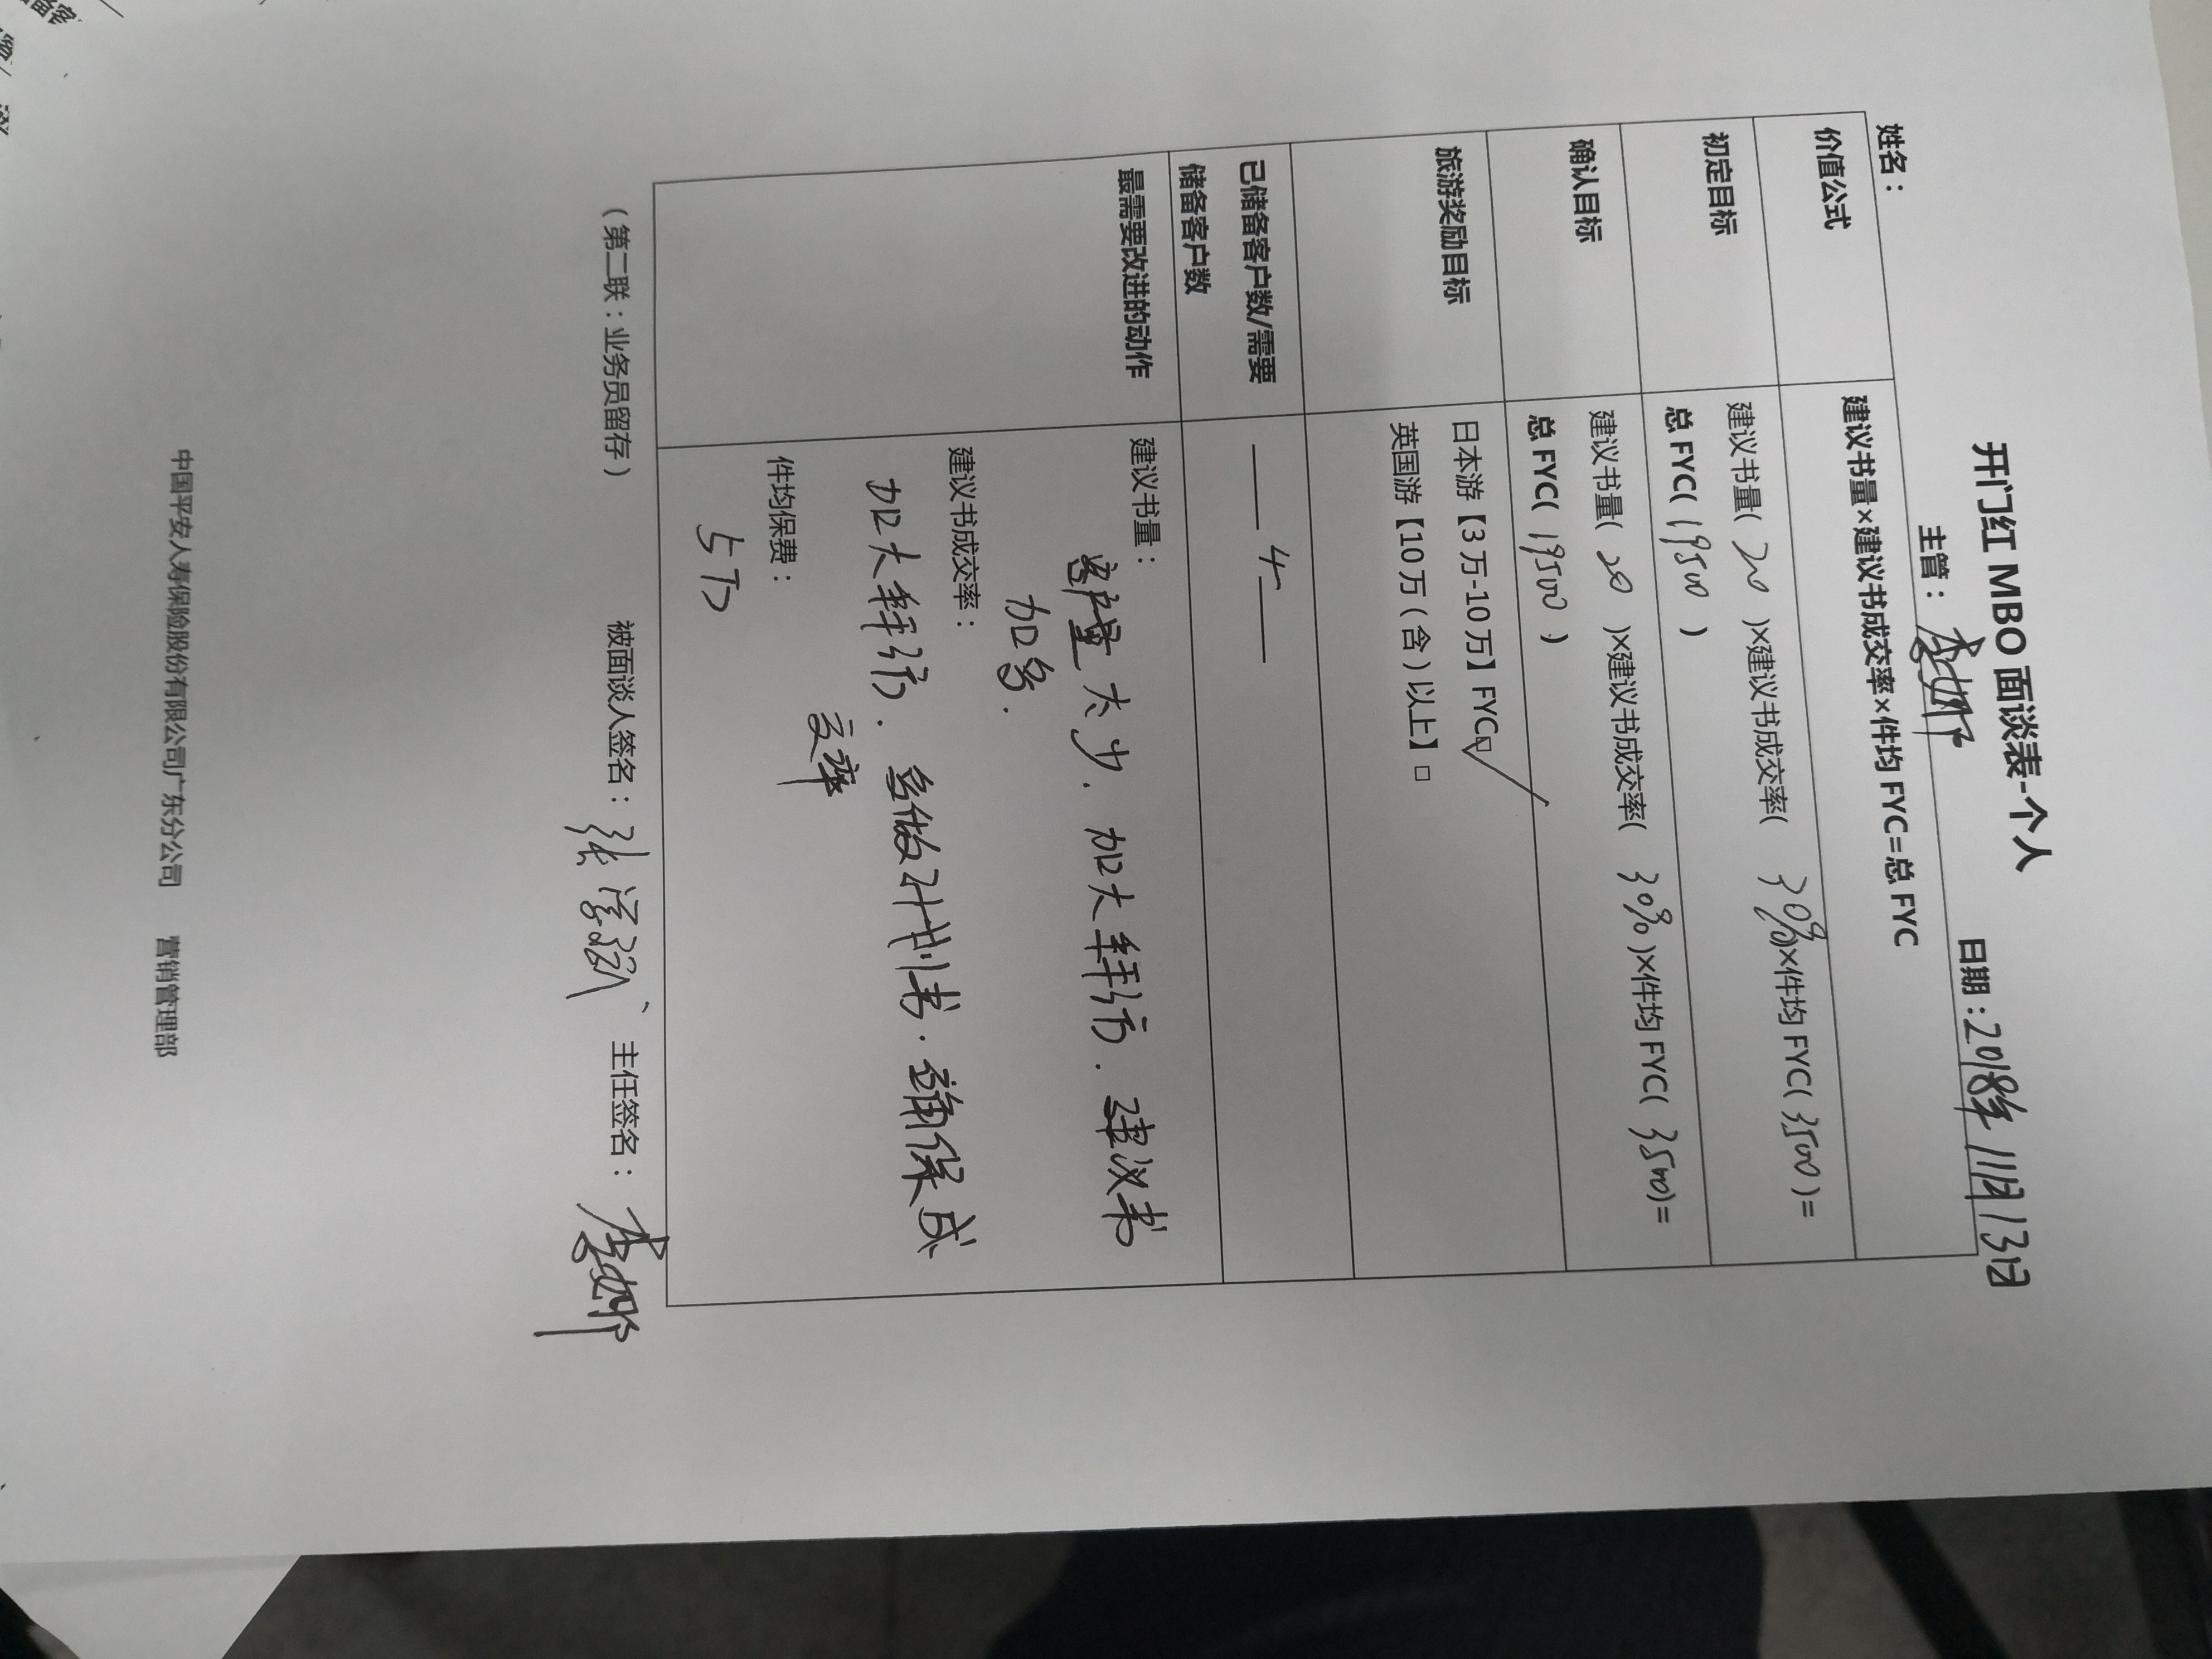 开门红 MBO 面谈表-个人
姓名： 主管：李娜 日期：2018年11月13日
价值公式 建议书量×建议书成交率×件均 FYC=总 FYC
初定目标 建议书量( 20 )×建议书成交率( 30%)×件均 FYC( 3500 )=
总 FYC( 19500 )
确认目标 建议书量( 20 )×建议书成交率( 30%)×件均 FYC( 3500)=
总 FYC( 19500 )
旅游奖励目标 日本游【3万-10万】FYC□✓
英国游【10万（含）以上】□
已储备客户数/需要
储备客户数
—— 4 ——
最需要改进的动作 建议书量：
客户量太少. 加大拜访. 建议书
加多.
建议书成交率：
加大拜访. 多做计划书. 确保成
交率
件均保费：
5万
（第二联：业务员留存） 被面谈人签名：张 主任签名：李娜
中国平安人寿保险股份有限公司广东分公司 营销管理部